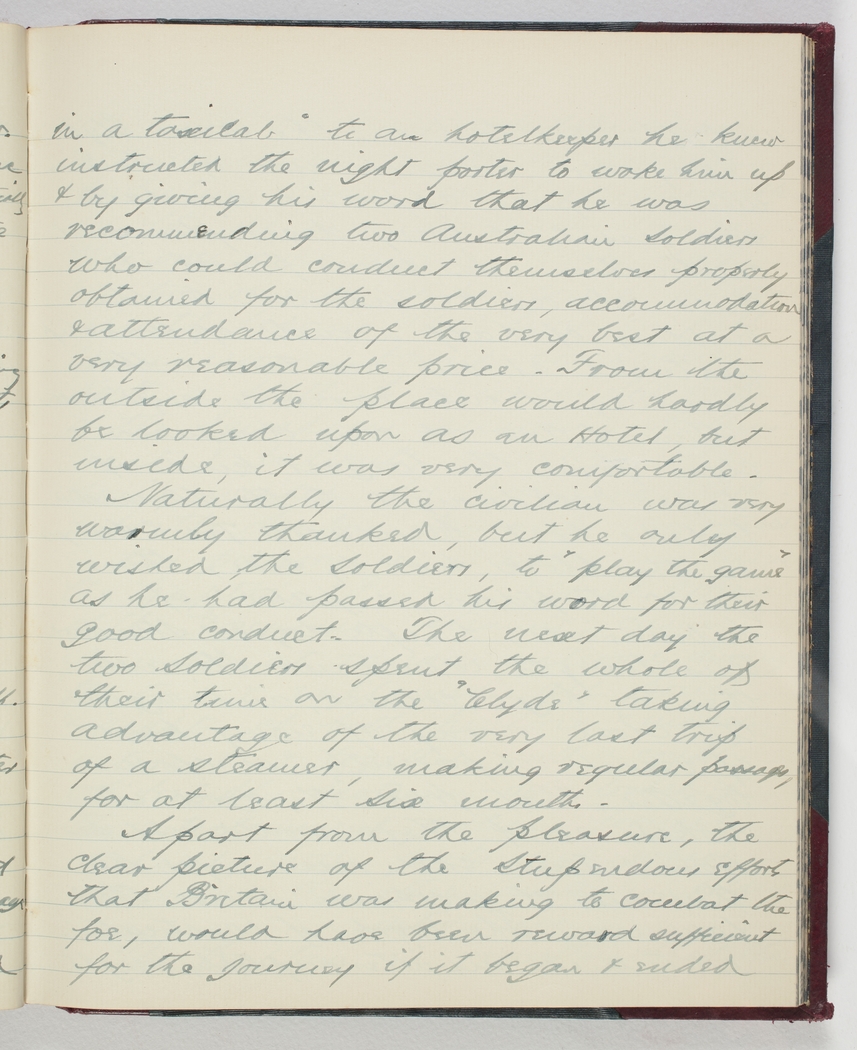 in a taxicab" to an hotelkeeper he knew
instructed the night porter to wake him up
& by giving his word that he was
recommending two Australian soldiers
who could conduct themselves properly
obtained for the soldiers, accommodation
& attendance of the very best at a
very reasonable price. From the
outside the place would hardly
be looked upon as an Hotel, but
inside, it was very comfortable.
Naturally the civilian was very
warmly thanked, but he only
wished the soldiers, to "play the game"
as he had passed his word for their
good conduct. The next day the
two soldiers spent the whole of
their time on the "Clyde" taking
advantage of the very last trip
of a steamer, making regular passages,
for at least six months.
Apart from the pleasure, the
clear picture of the stupendous efforts
that Britain was making to combat the
foe, would have been reward sufficient
for the journey if it began & ended